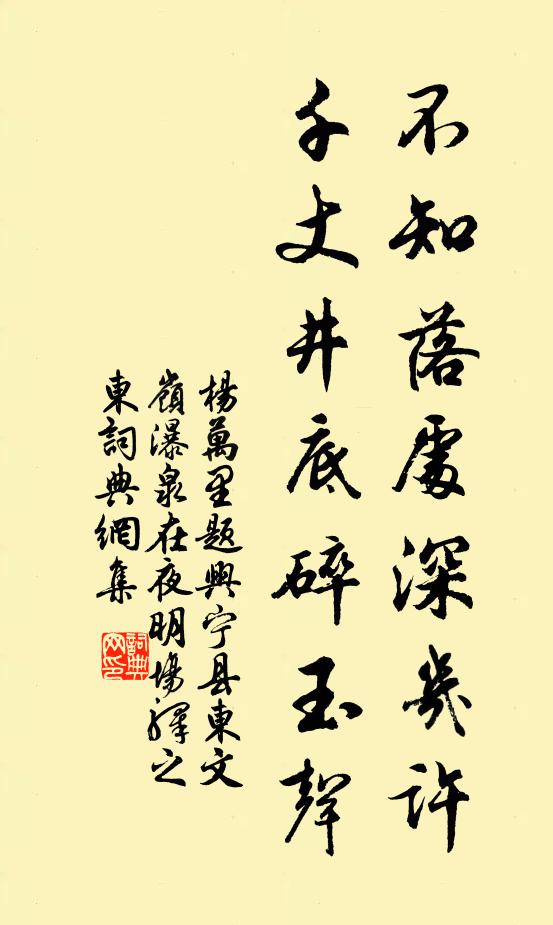 不知落處深幾許
千丈井底碎玉聲
楊萬里題興宁县東文
嶺瀑泉在夜明場驛之
東詞典網集
詞典
网印